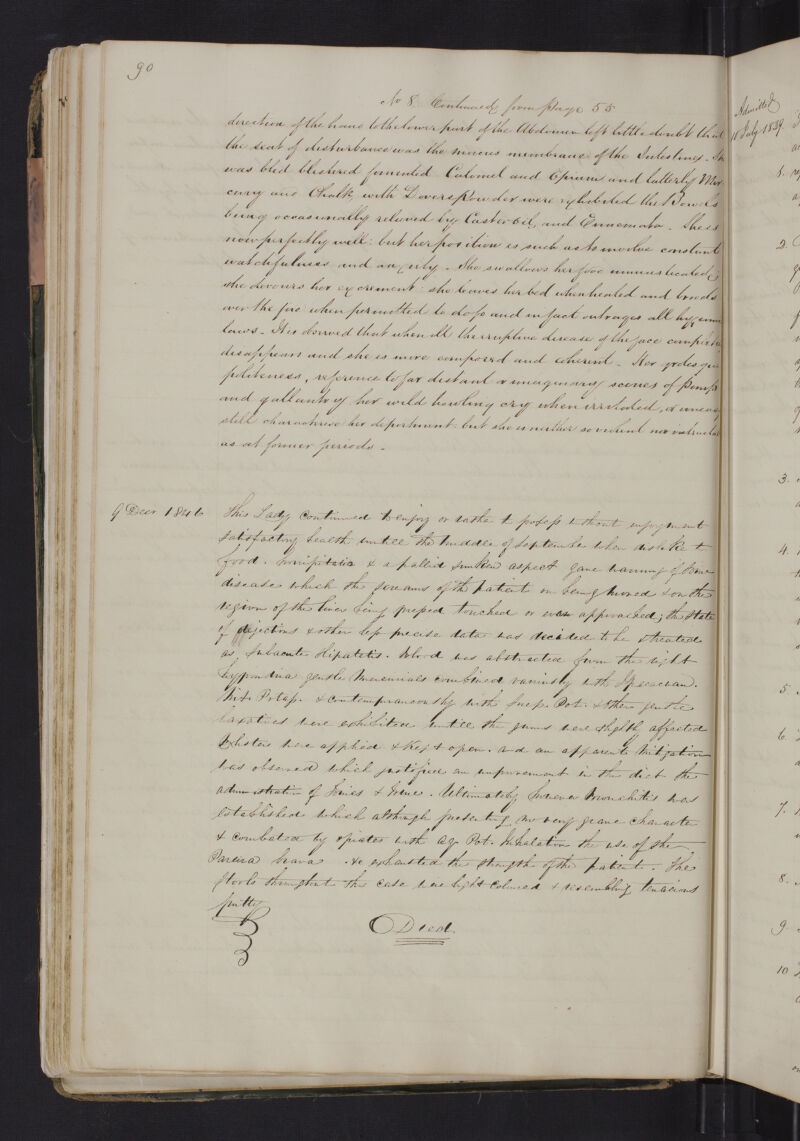 90
No 8. Continued from page 55
direction of the hand to the lower part of the Abdomen left little doubt that
the seat of disturbance was the mucus membrane of the Intestines. She
was bled blistered fomented Calomel and Opium and latterly Mer
cury and Chalk with Dovers Powder were exhibited the Bowels
being occasionally relieved by Castor oil and Ennemata. She is
now perfectly well: but her position is such as to involve constant
watchfulness and anxiety. She swallows her food unmasticated
she devours her excrement: she leaves her bed when heated and broods
over the fire when permitted to do so and in fact outrages all hygienic
laws. It is observed that when all the eruptive disease of the face completely
disappears and she is more composed and coherent. Her grotesque
politeness, reference to far distant or imaginary scenes of pomp
and gallantry her wild howling cry when irritated, or uneasy
still characterise her deportment but she is neither so violent nor
as at former periods.
9 Decr 1846
This Lady continued to enjoy or rather to possess without enjoyment
satisfactory health untill the middle of September when dislike to
food. & a pallid sunken aspect gave warning of some
disease which the screams of the patient on being moved & on the
region of the liver being pressed touched or even approached; the state
of dejections & other less precise data was decided to be & treated
as Subacute Hepatitis. Blood was abstracted from the right
hypondria gentle Mercurials combined variously with Ipecacuan.
Nit. Potass. & contemporaneously with Pot. & other gentle
laxatives were exhibited untill the gums were slightly affected
Blisters were applied & kept open. and an apparent mitigation
was observed which justified an improvement in the diet the
administration of & Wine. Ultimately however Bronchitis was
established which although presenting no very grave character
& combated by opiates with Aq. Pot. Inhalation the use of the
Pareira brava &c exhausted the strength of the patient. The
stools throughout the case were light coloured & resembling tenacious
putty
Died.
Admitted
July 1839
1.
2.
3.
4.
5.
6.
7.
8.
9.
10